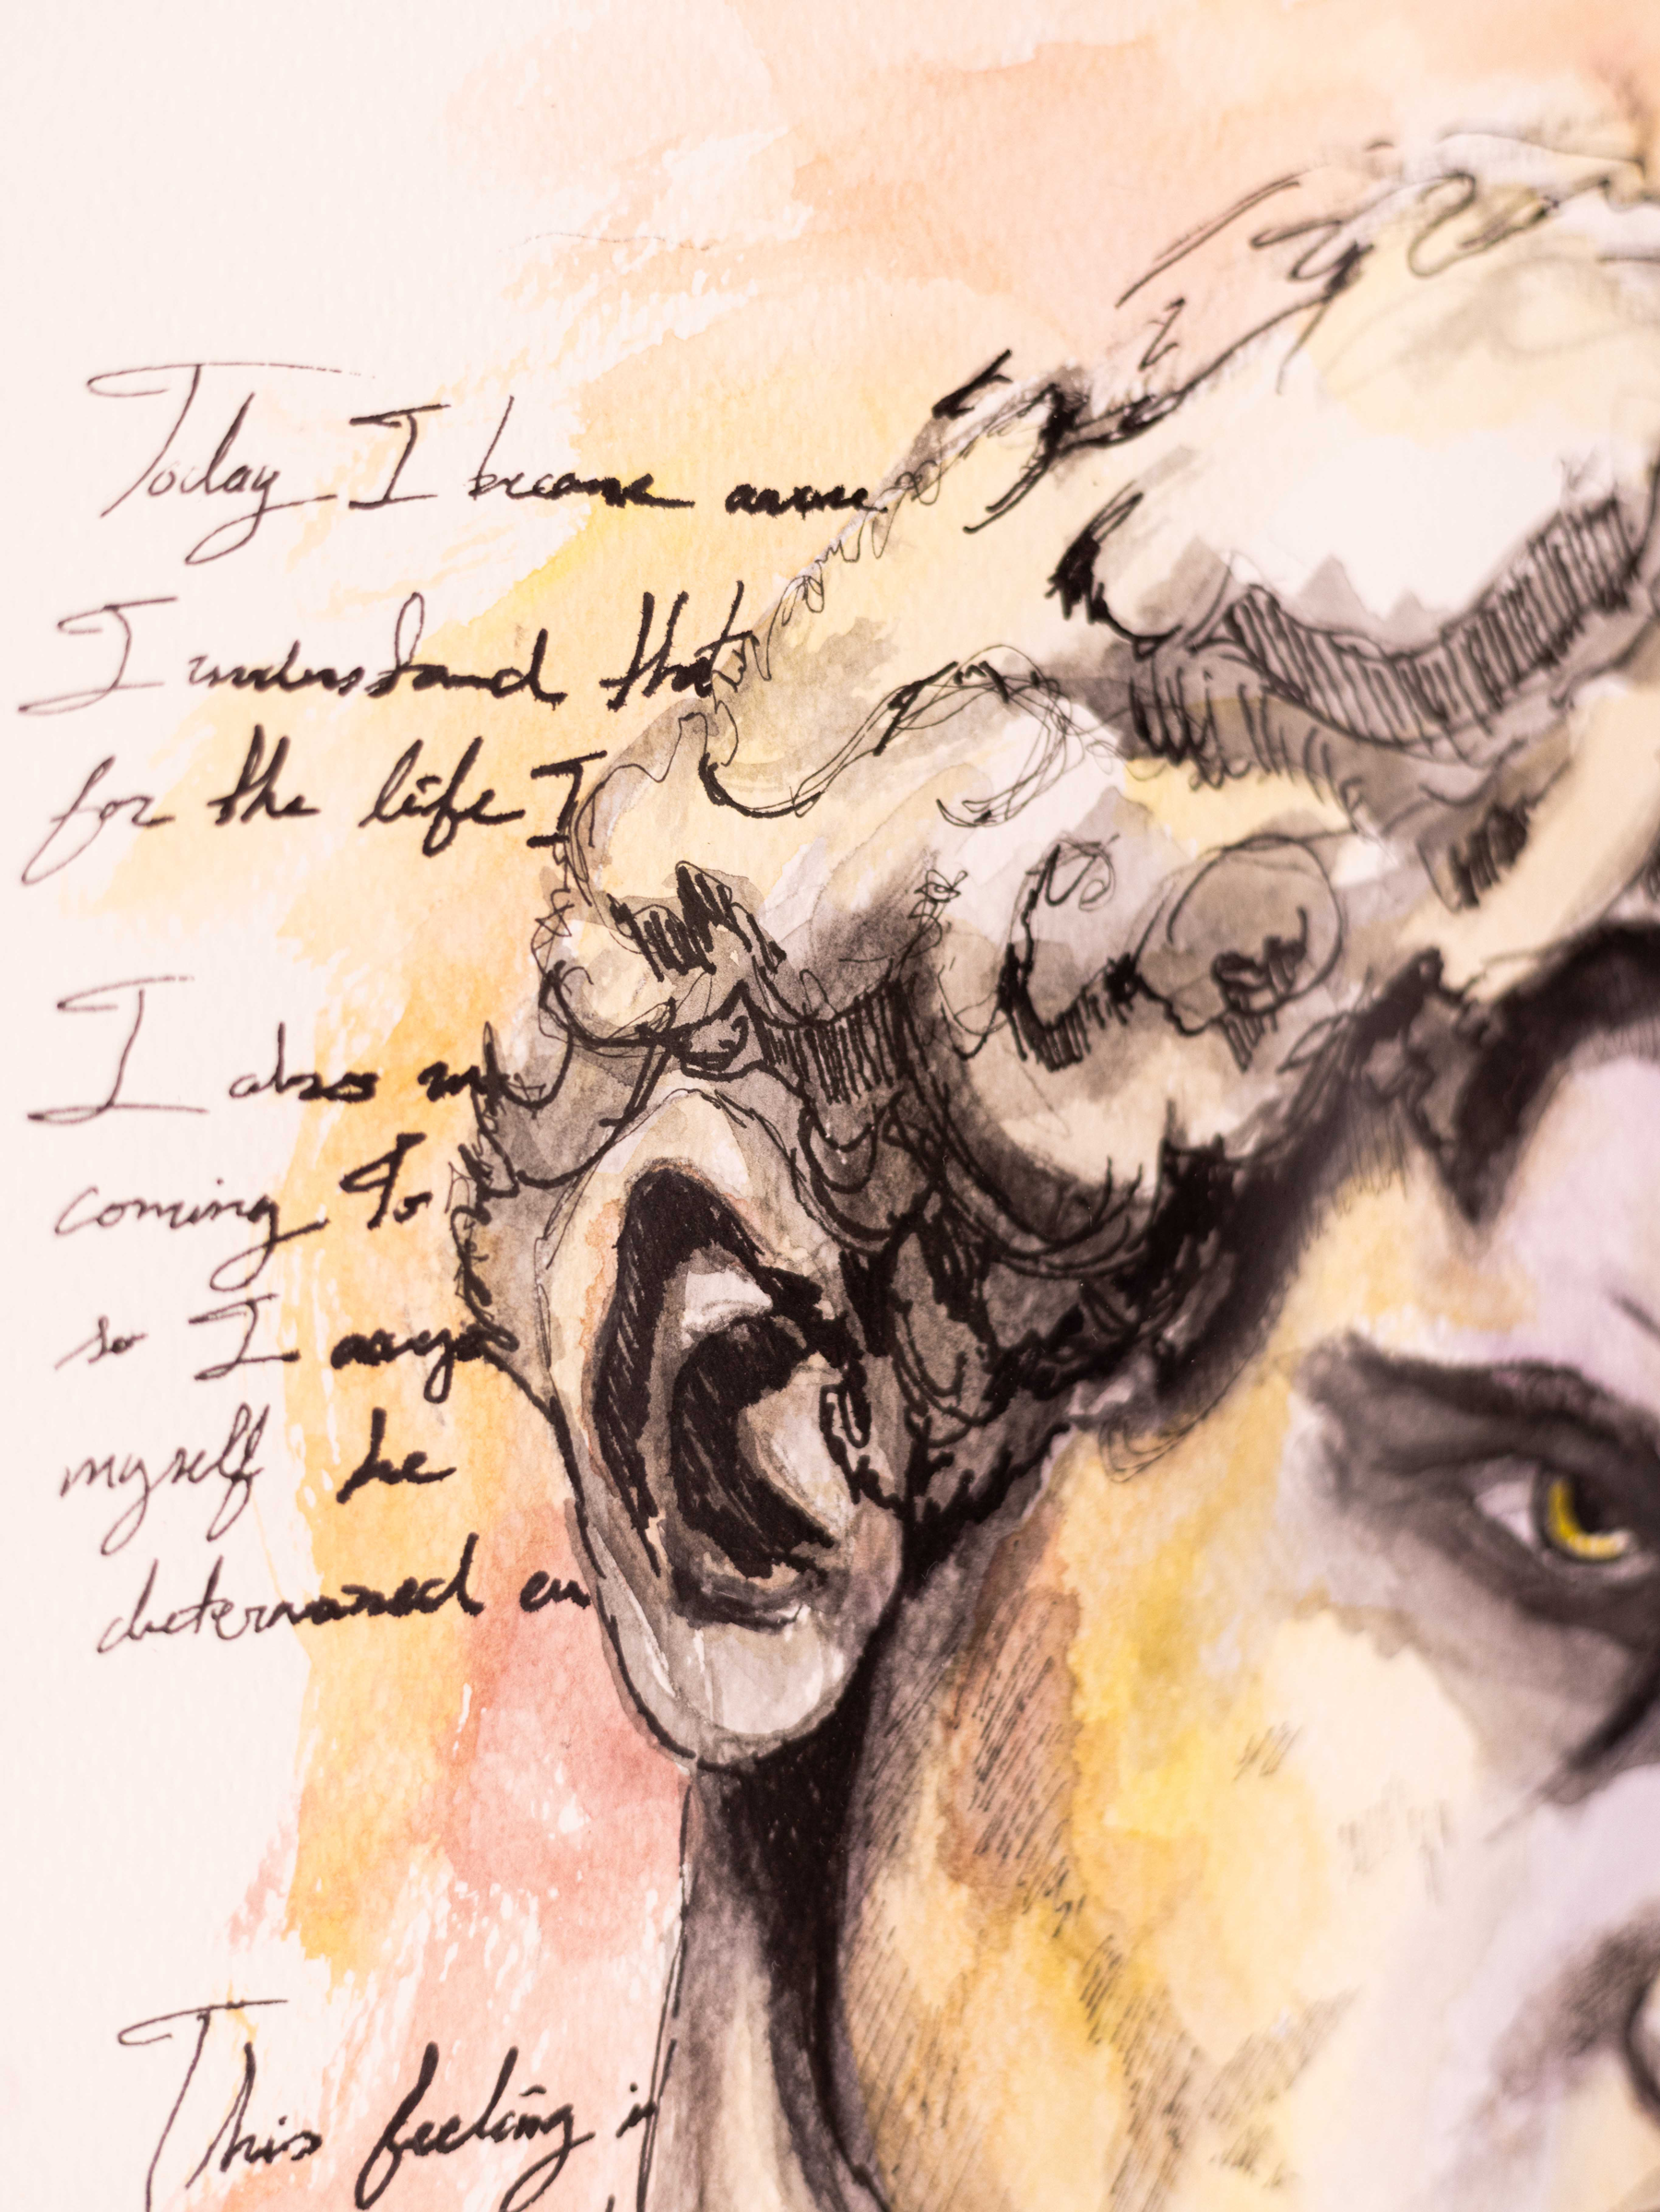 Today I became aware
I understand that
for the life I
I also
coming to
so I
myself be
determined en
This feeling is